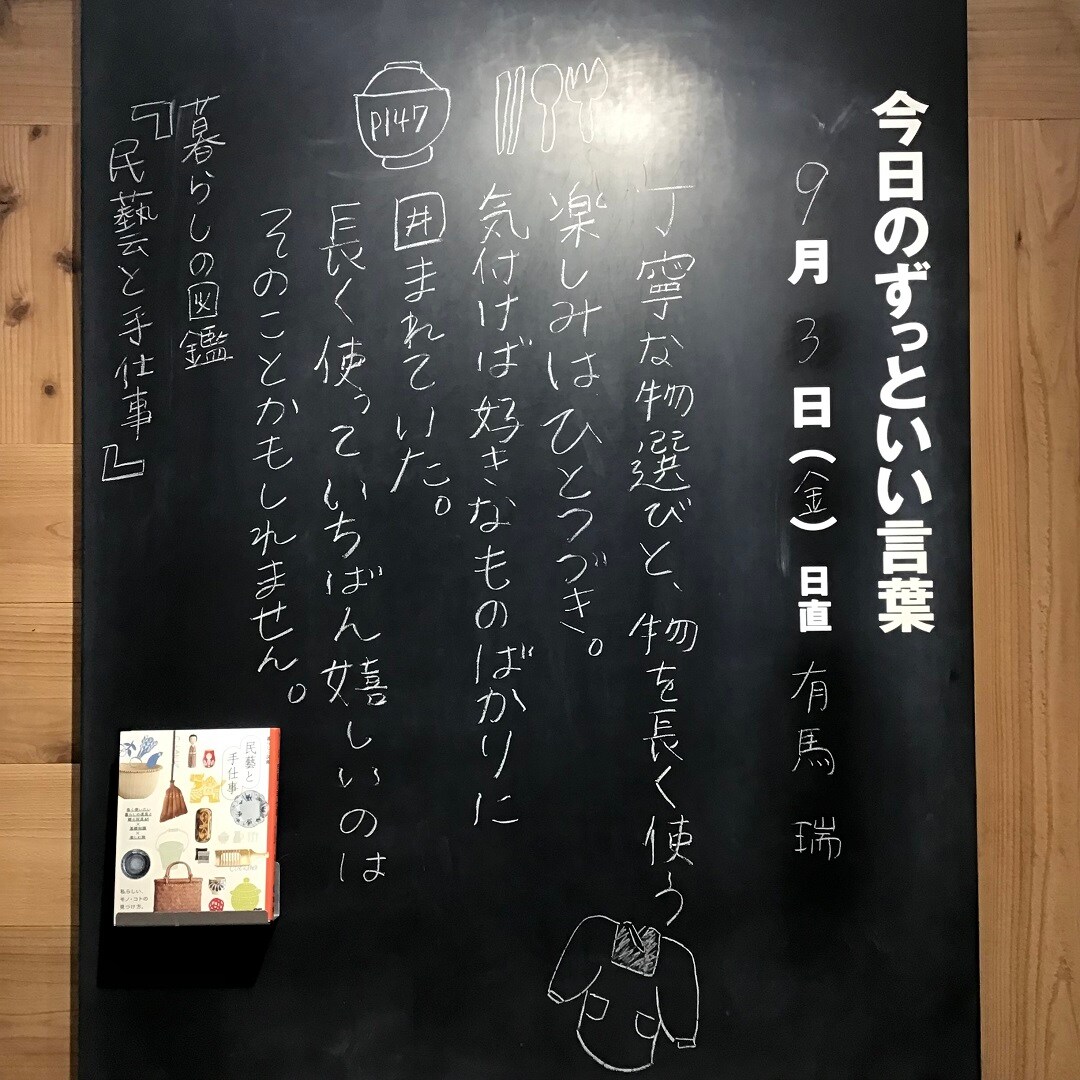 今日のずっといい言葉
9月3日(金) 日直 有馬 瑞
丁寧な物選びと、物を長く使う
楽しみはひとつづき。
気付けば好きなものばかりに
囲まれていた。
長く使っていちばん嬉しいのは
そのことかもしれません。
P147
暮らしの図鑑
『民藝と手仕事』
民藝と
手仕事
私らしい、
モノ・コトの
見つけ方。